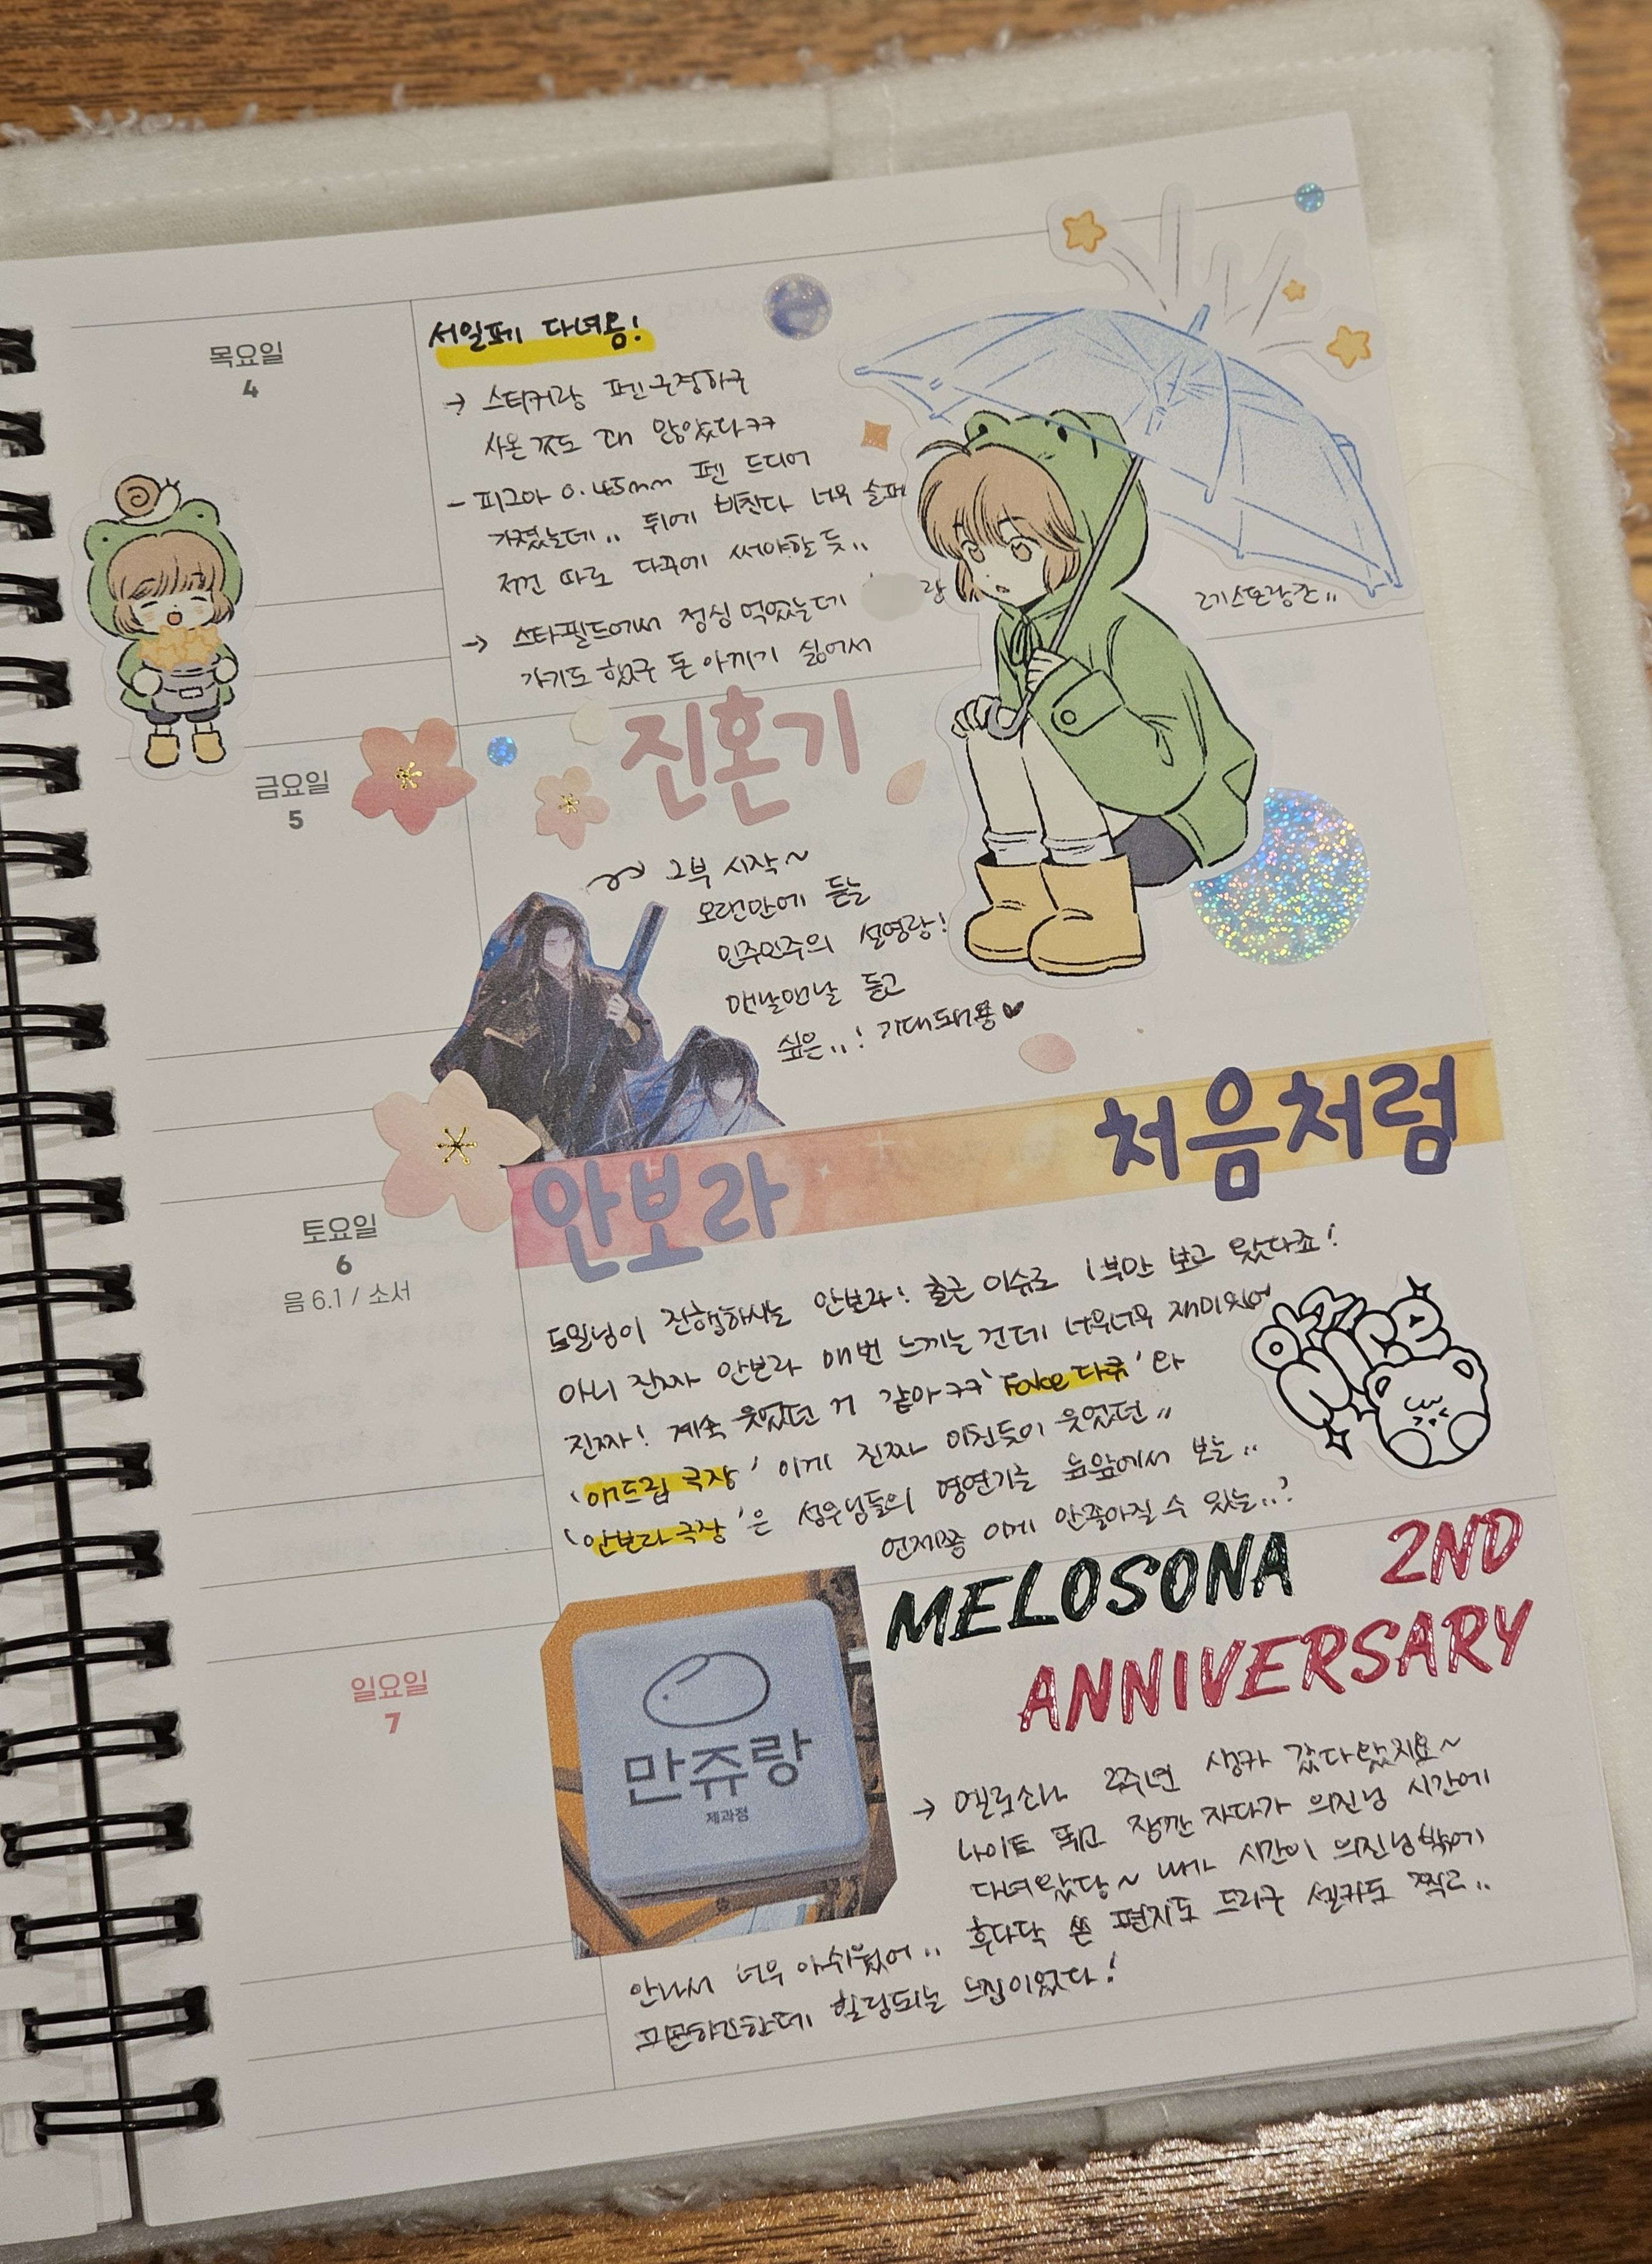 목요일
4
서일페 다녀옹!
→ 스티커랑 펜구경하구
사온 것도 꽤 많았다ㅋㅋ
- 피그마 0.45mm 펜 드디어
가졌는데.. 뒤에 비친다 너무 슬퍼
저건 따로 다꾸에 써야할듯..
→ 스타필드에서 점심 먹었는데 랑
레스토랑간..
가기도 했구 돈 아끼기 싫어서
금요일
5
진혼기
2부 시작~
오랜만에 듣는
민주인주의 설영랑!
맨날맨날 듣고
싶은..! 기대돼용♥
토요일
6
음 6.1 / 소서
안보라
처음처럼
도일님이 진행하시는 안보라! 출근 이슈로 1부만 보고 왔다죠!
아니 진짜 안보라 매번 느끼는 건데 너무너무 재미있어
진짜! 계속 웃었던 거 같아ㅋㅋ 'Fake 다큐' 와
'애드립 극장' 이게 진짜 미친듯이 웃었던..
'안보라극장'은 성우님들의 명연기를 눈앞에서 보는..
언제쯤 이게 안좋아질 수 있는..?
nice
일요일
7
만쥬랑
제과점
MELOSONA 2ND
ANNIVERSARY
→ 멜로소나 2주년 생카 갔다왔지요~
나이트 뛰고 잠깐 자다가 의진님 시간에
다녀왔당~ 내가 시간이 의진님밖에
안나서 너무 아쉬웠어.. 후다닥 쓴 편지도 드리구 셀카도 찍고..
피곤하긴한데 힐링되는 느낌이었다!